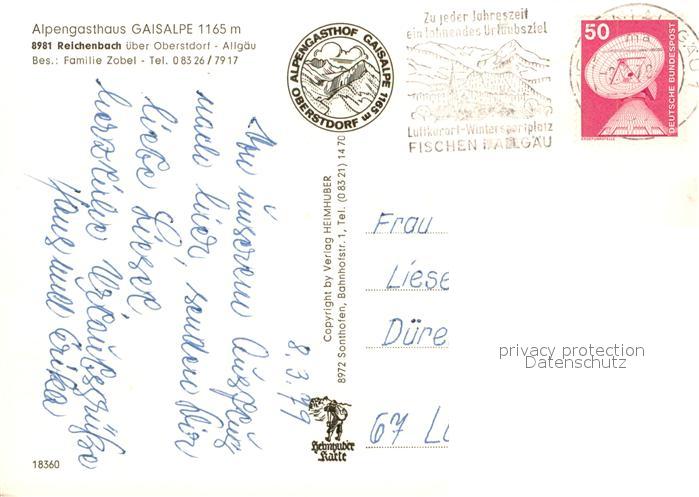 Alpengasthaus GAISALPE 1165 m
8981 Reichenbach über Oberstdorf - Allgäu
Bes.: Familie Zobel - Tel. 0 83 26 / 79 17
ALPENGASTHOF GAISALPE 1165 m
OBERSTDORF
Zu jeder Jahreszeit
ein lohnendes Urlaubsziel
Luftkurort-Wintersportplatz
FISCHEN I. ALLGÄU
50
DEUTSCHE BUNDESPOST
8.3.79
An unserem Ausflug
nach hier, senden Dir
liebe Liesel,
herzliche Urlaubsgrüße
Hans und Erika
Copyright by Verlag HEIMHUBER
8972 Sonthofen, Bahnhofstr. 1, Tel. (0 83 21) 14 70
Frau
Liese
Düre
67 Lu
privacy protection
Datenschutz
Heimhuber
Karte
18360